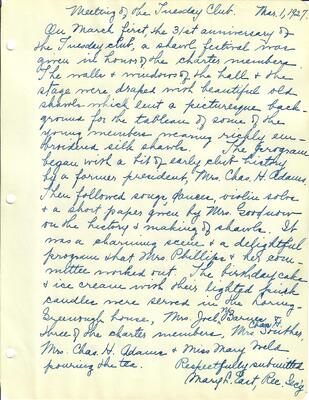 Meeting of the Tuesday Club. Mar. 1, 1927.
On March first, the 31st anniversary of
the Tuesday club, a shawl festival was
given in honor of the charter members.
The walls & windows of the hall & the
stage were draped with beautiful old
shawls which lent a picturesque back-
ground for the tableau of some of the
young members wearing richly em-
broidered silk shawls. The program
began with a bit of early club history
by a former president, Mrs. Chas. H. Adams.
Then followed songs, dances, violin solo
& a short paper given by Mrs. Goodnow
on the history & making of shawls. It
was a charming scene & a delightful
program that Mrs. Phillips & her com-
mittee worked out. The birthday cake
& ice cream with their lighted pink
candles were served in the
Greenough house, Mrs. Joel Barnes
three of the charter members, Mrs. Chas. H. Souther,
Mrs. Chas. H. Adams & Miss Mary Weld
pouring the tea. Respectfully submitted
Mary L. East, Rec. Sec'y.